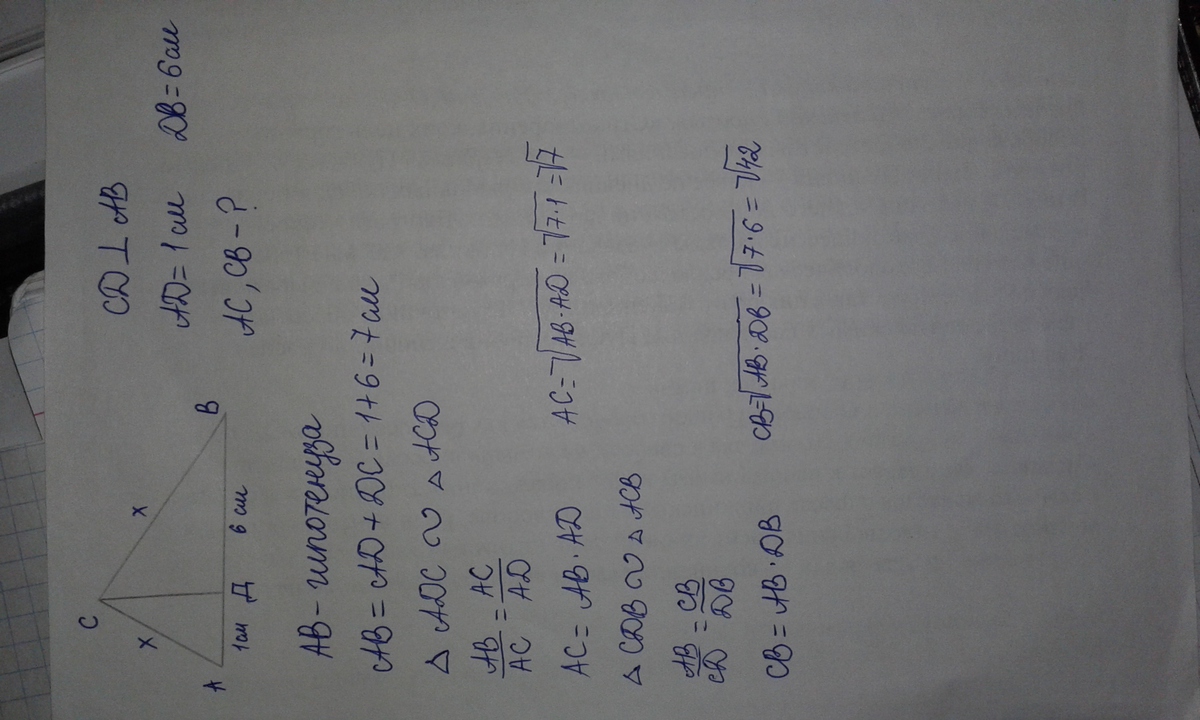 C
x x
A 1 см Д 6 см B
CD ⊥ AB
AD = 1 см DB = 6 см
AC, CB - ?
AB - гипотенуза
AB = AD + DC = 1 + 6 = 7 см
△ ADC ∾ △ ACD
AB/AC = AC/AD
AC = AB · AD AC = √AB·AD = √7·1 = √7
△ CDB ∾ △ ACB
AB/CD = CB/DB
CB = AB · DB CB = √AB·DB = √7·6 = √42